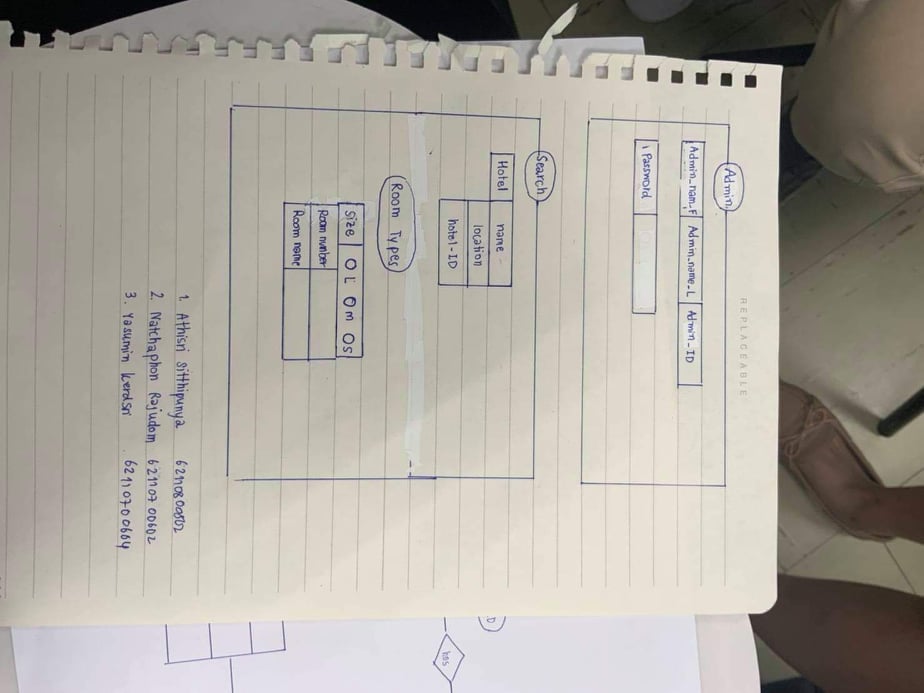 REPLACEABLE
Admin
Admin_nam_F Admin_name_L Admin_ID
Password
Search
Hotel name
location
hotel-ID
Room Types
size O L O m O s
Room number
Room name
1. Athisri Sitthipunya
2. Natchaphon Rajudom 62110700602
3. Yasumin Kerdsri 62110700664
has
D